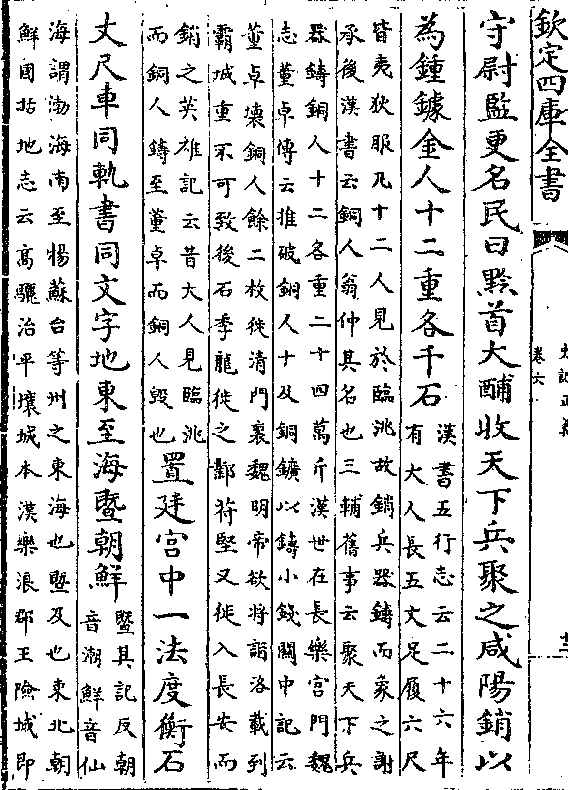 欽定四庫全書
史記正義
卷六
守尉監更名民曰黔首大酺收天下兵聚之咸陽銷以
為鍾鐻金人十二重各千石
漢書五行志云二十六年
有大人長五丈足履六尺
皆夷狄服凡十二人見於臨洮故銷兵器鑄而象之謝
承後漢書云銅人翁仲其名也三輔舊事云聚天下兵
器鑄銅人十二各重二十四萬斤漢世在長樂宮門魏
志董卓傳云推破銅人十及銅鑛以鑄小錢關中記云
董卓壞銅人餘二枚徙清門裏魏明帝欲將詣洛載到
霸城重不可致後石季龍徙之鄴苻堅又徙入長安而
銷之英雄記云昔大人見臨洮
而銅人鑄至董卓而銅人毀也
置廷宫中一法度衡石
丈尺車同軌書同文字地東至海暨朝鮮
暨其記反朝
音潮鮮音仙
海謂渤海南至楊蘇台等州之東海也暨及也東北朝
鮮國括地志云高驪治平壤城本漢樂浪郡王險城即